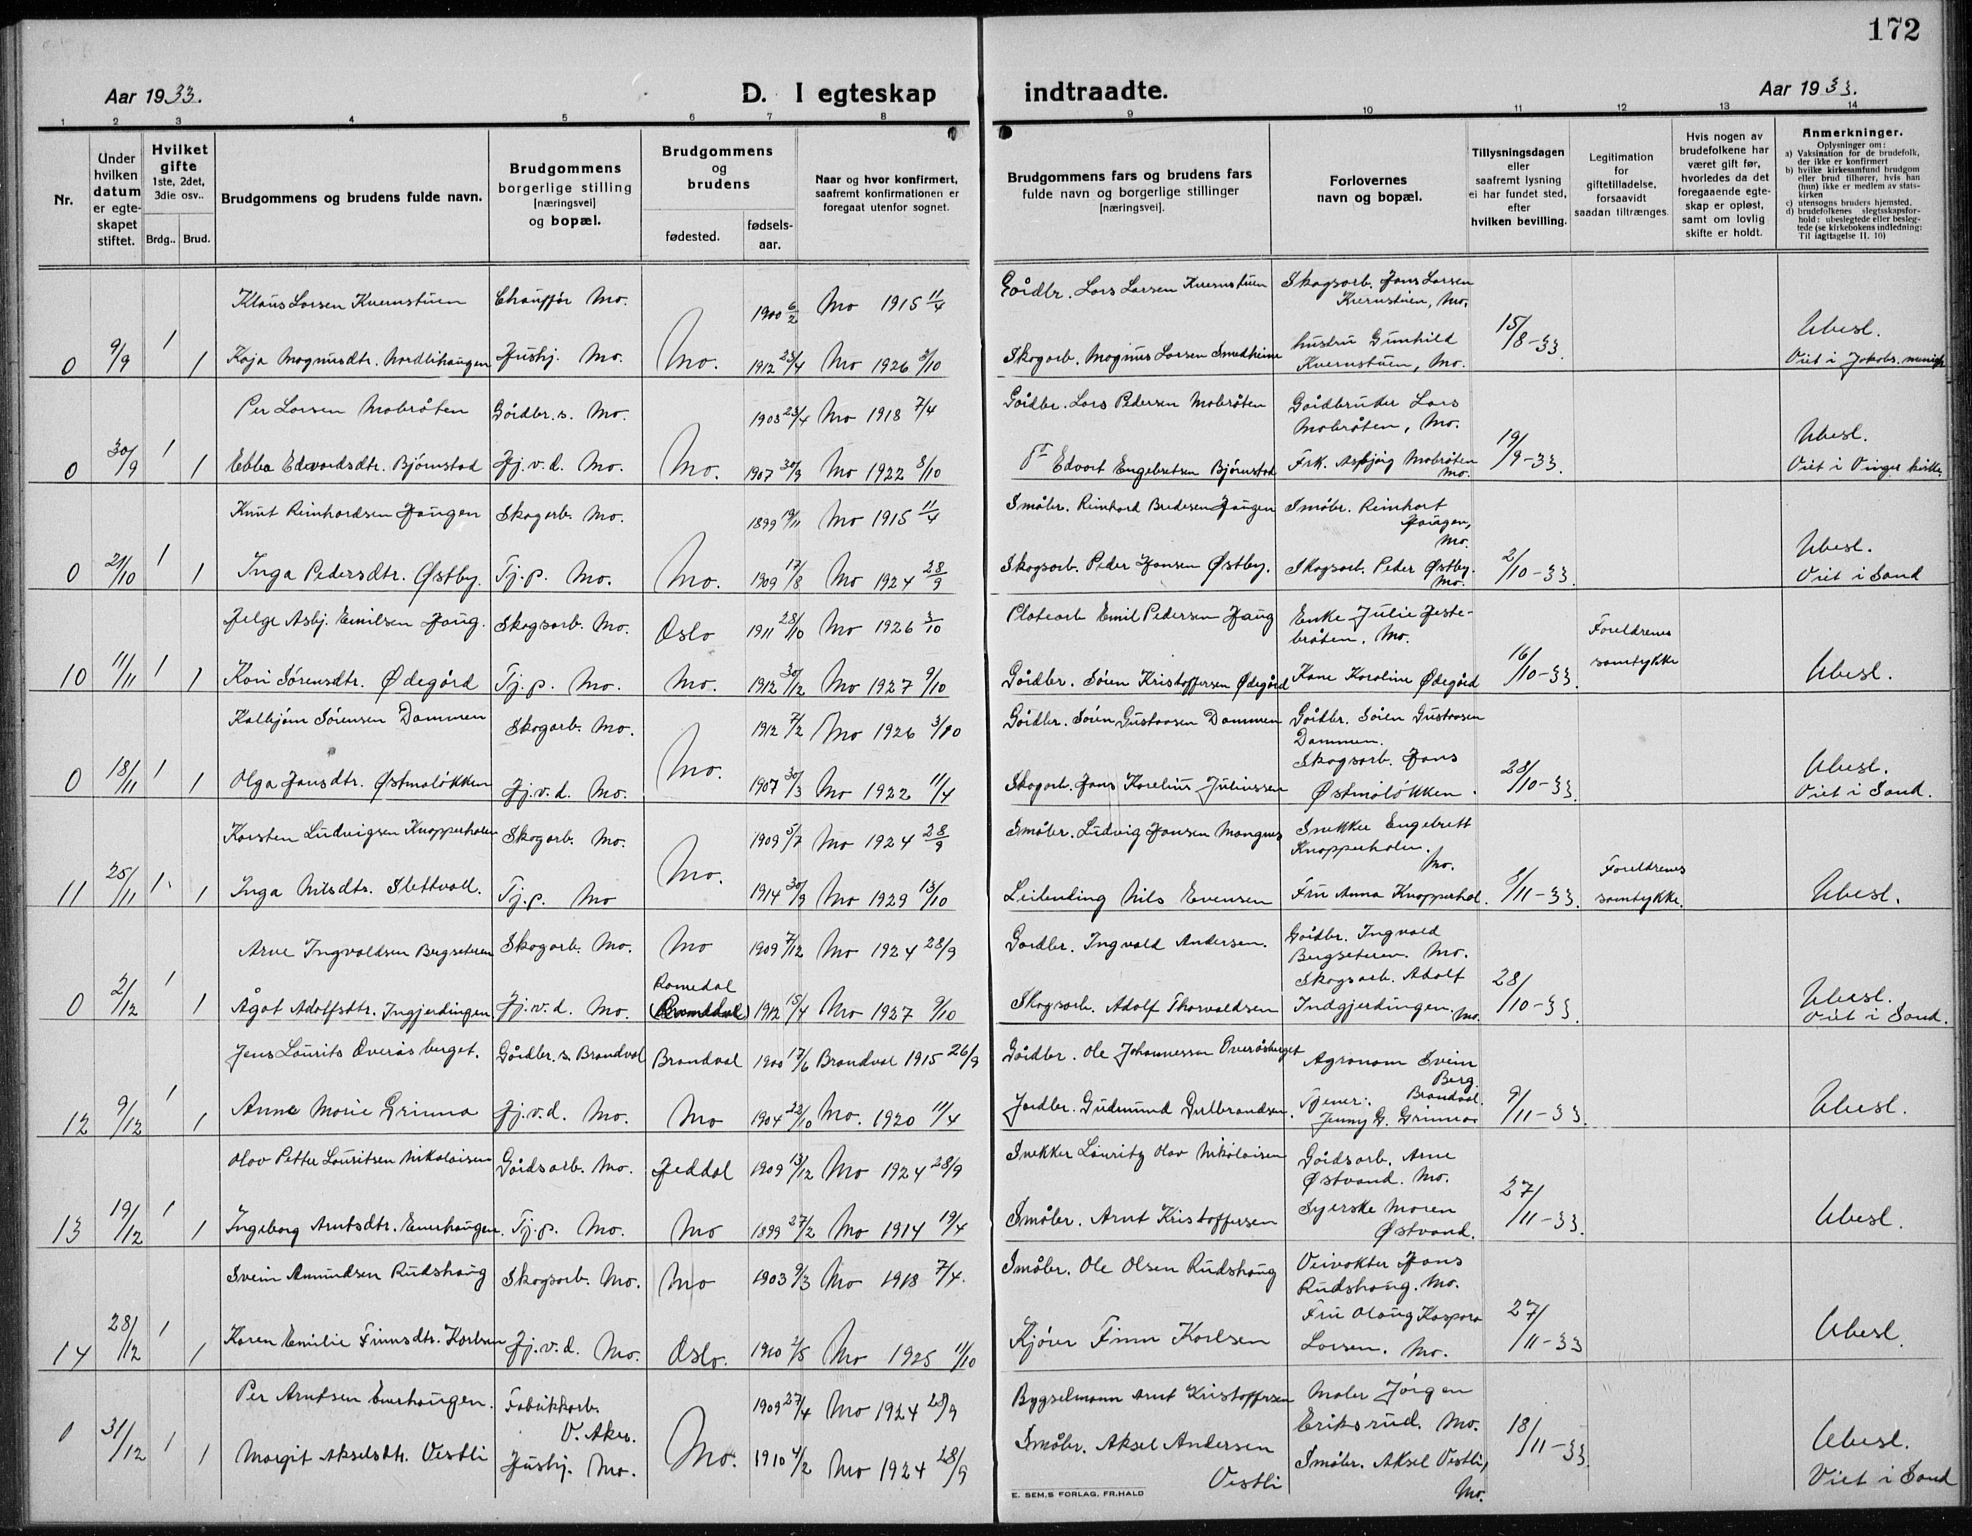 172
Aar 1933.
D. I egteskap indtraadte.
Aar 1933.
1 2 3 4 5 6 7 8 9 10 11 12 13 14
Nr.
Under hvilken datum er egteskapet stiftet.
Hvilket gifte 1ste, 2det, 3die osv..
Brdg.. Brud.
Brudgommens og brudens fulde navn.
Brudgommens borgerlige stilling [næringsvei] og bopæl.
Brudgommens og brudens
fødested.
fødsels-aar.
Naar og hvor konfirmert, saafremt konfirmationen er foregaat utenfor sognet.
Brudgommens fars og brudens fars fulde navn og borgerlige stillinger [næringsvei].
Forlovernes navn og bopæl.
Tillysningsdagen eller saafremt lysning ei har fundet sted, efter hvilken bevilling.
Legitimation for giftetilladelse, forsaavidt saadan tiltrænges.
Hvis nogen av brudefolkene har været gift før, hvorledes da det foregaaende egteskap er opløst, samt om lovlig skifte er holdt.
Anmerkninger.
Oplysninger om:
a) Vaksination for de brudefolk, der ikke er konfirmert
b) hvilke kirkesamfund brudgom eller brud tilhører, hvis han (hun) ikke er medlem av statskirken
c) utensogns bruders hjemsted.
d) brudefolkenes slegtsskapsforhold: ubeslegtede eller beslegtede (se kirkebokens indledning: Til iagttagelse II. 10)
Klaus Larsen Kvernstuen Chauffør Mo. 1900 6/2 Mo 1915 11/4 Gårdbr. Lars Larsen Kvernstuen Skogsarb. Hans Larsen Kvernstuen, Mo.
0 9/9 1 1 Kaja Magnusdtr. Nordlihaugen Hushj. Mo. Mo. 1912 23/4 Mo 1926 3/10 Skogarb. Magnus Larsen Smedheim hustru Gunhild Kvernstuen, Mo. 15/8-33. Ubesl. Viet i Jakobs. menigh
Per Larsen Mobråten Gårdbr.s. Mo. 1903 23/4 Mo 1918 7/4 Gårdbr. Lars Pedersen Mobråten Gårdbruker Lars Mobråten, Mo.
0 30/9 1 1 Ebba Edvardsdtr. Bjørnstad Hj.v.d. Mo. Mo. 1907 30/9 Mo 1922 8/10 Edvart Engebretsen Bjørnstad Frk. Asbjörg Mobråten Mo. 19/9-33. Ubesl. Viet i Vinger kirke.
Knut Reinhardsen Haugen Skogarb. Mo. 1899 19/11 Mo 1915 11/4 Småbr. Reinhard Bredesen Haugen Småbr. Reinhart Haugen, Mo.
0 21/10 1 1 Inga Pedersdtr. Østby. Tj.p. Mo. Mo. 1909 17/8 Mo 1924 28/9 Skogsarb. Peder Hansen Østby. Skogsarb. Peder Østby. Mo. 2/10-33. Ubesl. Viet i Sand
Helge Asbj. Emilsen Haug. Skogsarb. Mo. Oslo 1911 28/10 Mo 1926 3/10 Platearb Emil Pedersen Haug Enke Julie Hestebråten. Mo.
10 11/11 1 1 Kari Sørensdtr. Ødegård Tj.p. Mo. Mo. 1912 30/12 Mo 1927 9/10 Gårdbr. Sören Kristoffersen Ødegård Kone Karoline Ødegård 16/10-33. Foreldrenes samtykke Ubesl.
Kolbjørn Sörensen Dammen Skogarb. Mo. 1912 7/2 Mo 1926 3/10 Gårdbr. Sörén Gustavsen Dammen Gårdbr. Sören Gustavsen Dammen.
0 18/11 1 1 Olga Hansdtr. Østmolökken Hj.v.d. Mo. Mo. 1907 30/3 Mo 1922 11/4 Skogarb. Hans Karelius Juliussen Skogsarb. Hans Østmolökken. 28/10-33. Ubesl. Viet i Sand.
Karsten Ludvigsen Knapperholen Skogarb. Mo. 1909 5/7 Mo 1924 28/9 Småbr. Ludvig Hansen Mangnes Snekker Engebrett Knapperholen. Mo.
11 25/11 1. 1 Inga Nilsdtr. Slettvoll. Tj.p. Mo Mo. 1914 30/9 Mo 1929 13/10 Leilending Nils Evensen Fru Anna Knapperhol. /11-33. Foreldrenes samtykke. Ubesl.
Arne Ingvaldsen Bergseteren Skogarb. Mo. Mo 1909 7/12 Mo 1924 28/9 Gardbr. Ingvald Andersen. Gårdbr. Ingvald Bergseteren. Mo.
0 2/12 1 1 Ågot Adolfsdtr. Ingjerdingen. Hj.v.d. Mo. Romedal 1912 15/4 Mo 1927 9/10 Skogsarb. Adolf Thorvaldsen Skogsarb. Adolf Indgjerdingen. Mo. 28/10-33. Ubesl. Viet i Sand.
Jens Laurits Overåsberget. Gårdbr.s. Brandval Brandval 1900 17/6 Brandval 1915 26/9 Gårdbr. Ole Johannessen Overåsberget Agronom Svein Berg. Brandval.
12 9/12 1 1 Anne Marie Grinna Hj.v.d. Mo. Mo 1904 22/10 Mo. 1920 11/4 Jordbr. Gudmund Gulbrandsen. Jenny G. Grinna 9/11-33. Ubesl.
Olav Petter Lauritsen Nikolaisen Gårdsarb. Mo. Heddal 1909 13/12 Mo 1924 28/9 Snekker Lauritz Olav Nikolaisen Gårdsarb. Arne Østvand. Mo.
13 19/12 1 1 Ingeborg Arntsdtr. Enerhaugen. Tj.p. Mo. Mo 1899 27/2 Mo 1914 19/4 Småbr. Arnt Kristoffersen Syerske Maren Østvand. 27/11-33. Ubesl.
Svein Amundsen Rudshaug Skogsarb. Mo. Mo 1903 9/3 Mo 1918 7/4. Småbr. Ole Olsen Rudshaug Veivokter Hans Rudshaug. Mo.
14 28/12 1 1 Karen Emilie Finnsdtr. Karlsen Hj.v.d. Mo. Oslo. 1910 /5 Mo 1925 11/10 Kjörer Finn Karlsen Fru Olaug Kaspara Larsen. Mo. 27/11-33 Ubesl.
Per Arntsen Enerhaugen. Fabrikkarb. V. Aker. 1909 27/4 Mo 1924 28/9 Bygselmann Arnt Kristoffersen Maler Jörgen Eriksrud. Mo.
0 31/12 1 1 Margit Akselsdtr. Vestli Hushj. Mo. Mo. 1910 4/2 Mo 1924 28/9 Småbr. Aksel Andersen Vestli Småbr. Aksel Vestli, Mo. 18/11-33. Ubesl. Viet i Sand
E. SEM,S FORLAG, FR.HALD